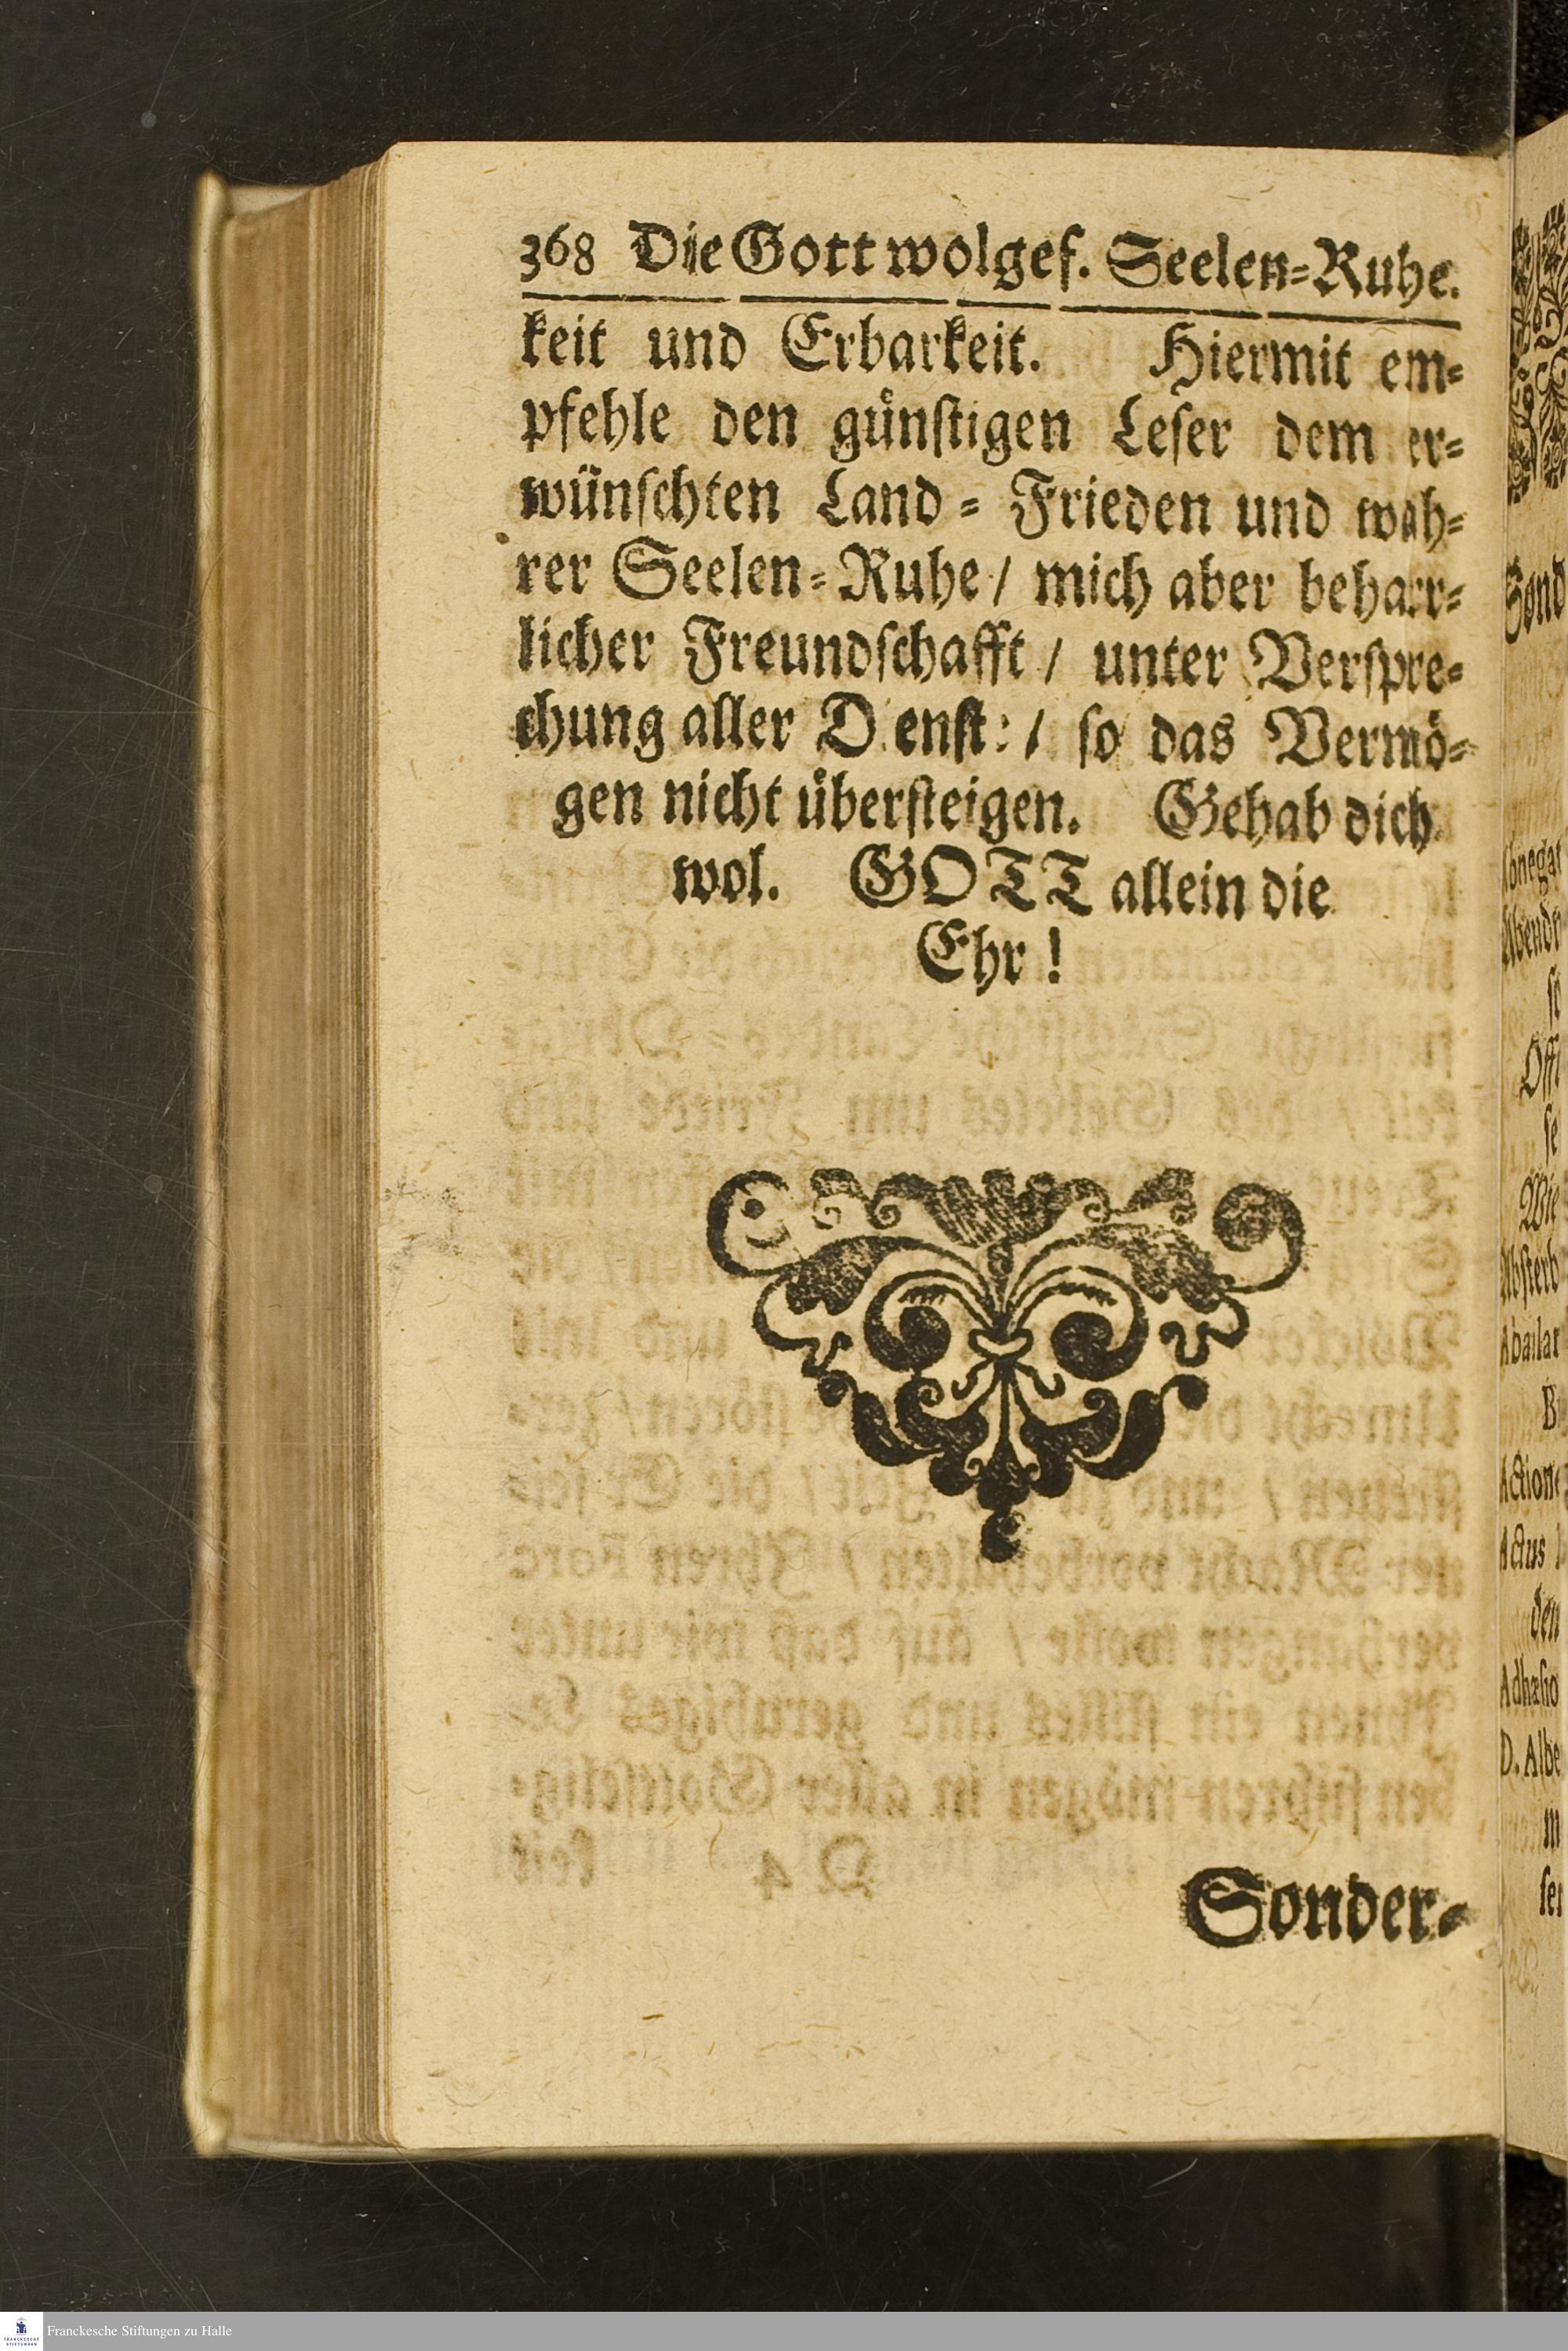 368 Die Gott wolgef. Seelen=Ruhe.
keit und Erbarkeit. Hiermit em=
pfehle den guͤnſtigen Leſer dem er=
wuͤnſchten Land = Frieden und wah=
rer Seelen=Ruhe / mich aber beharr=
licher Freundſchafft / unter Verſpre=
chung aller D enſt: / ſo das Vermoͤ=
gen nicht uͤberſteigen. Gehab dich
wol. GOTT allein die
Ehr !
Sonder=
Franckesche Stiftungen zu Halle